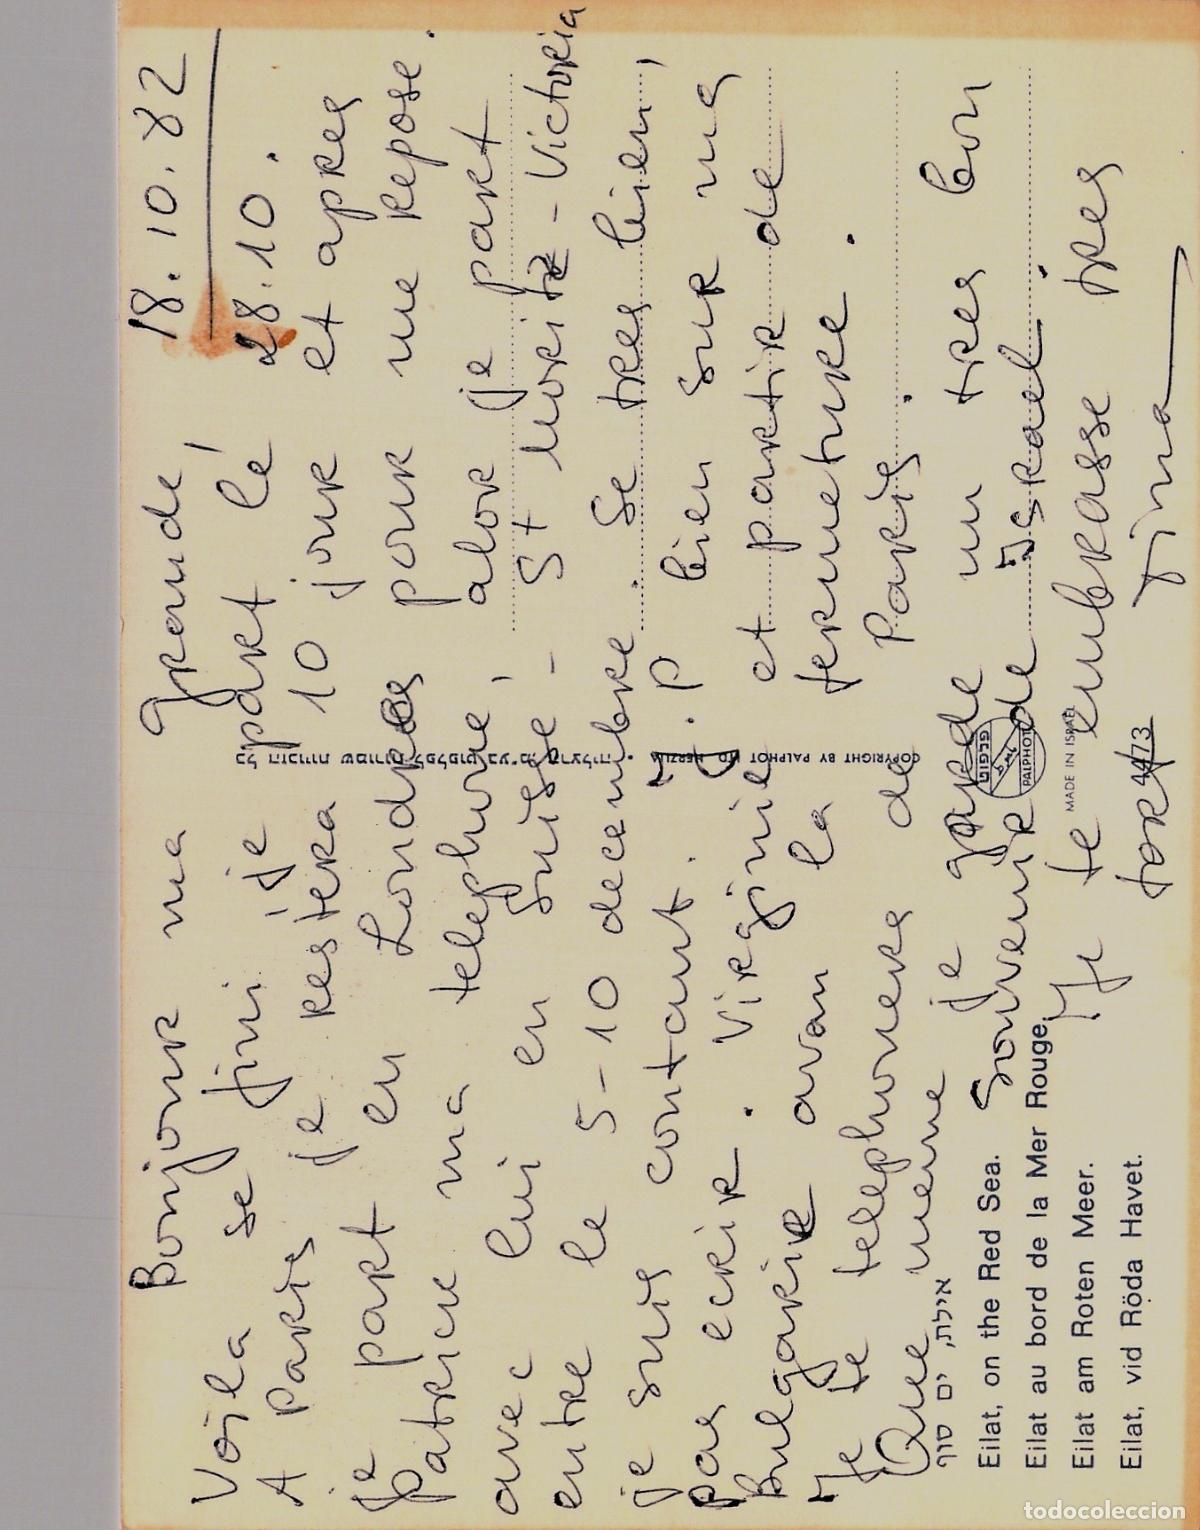 18.10.82
Bonjour ma Grande,
Voila se fini je part lé 28.10.
A Paris je restera 10 jour et apres
je part en Londres pour me repose.
Patrick ma telephoné, alor je part
avec lui en Suisse - St Moritz - Victoria
entre le 5-10 decembre. Se tres bien,
je suis contant. P bien sur ma
pas ecrir. Virginie et partir de
Bulgarie avan la fermeture.
Je te telephonera de Paris.
Que meme je garde un tres bon
Souvenir de Israel.
Je te embrasse tres
fort
אילת, ים סוף
Eilat, on the Red Sea.
Eilat au bord de la Mer Rouge.
Eilat am Roten Meer.
Eilat, vid Röda Havet.
COPYRIGHT BY PALPHOT LTD HERZLIA • כל הזכויות שמורות לפלפוט בע"מ הרצליה
פלפוט
PALPHOT
MADE IN ISRAEL
4473
todocoleccion